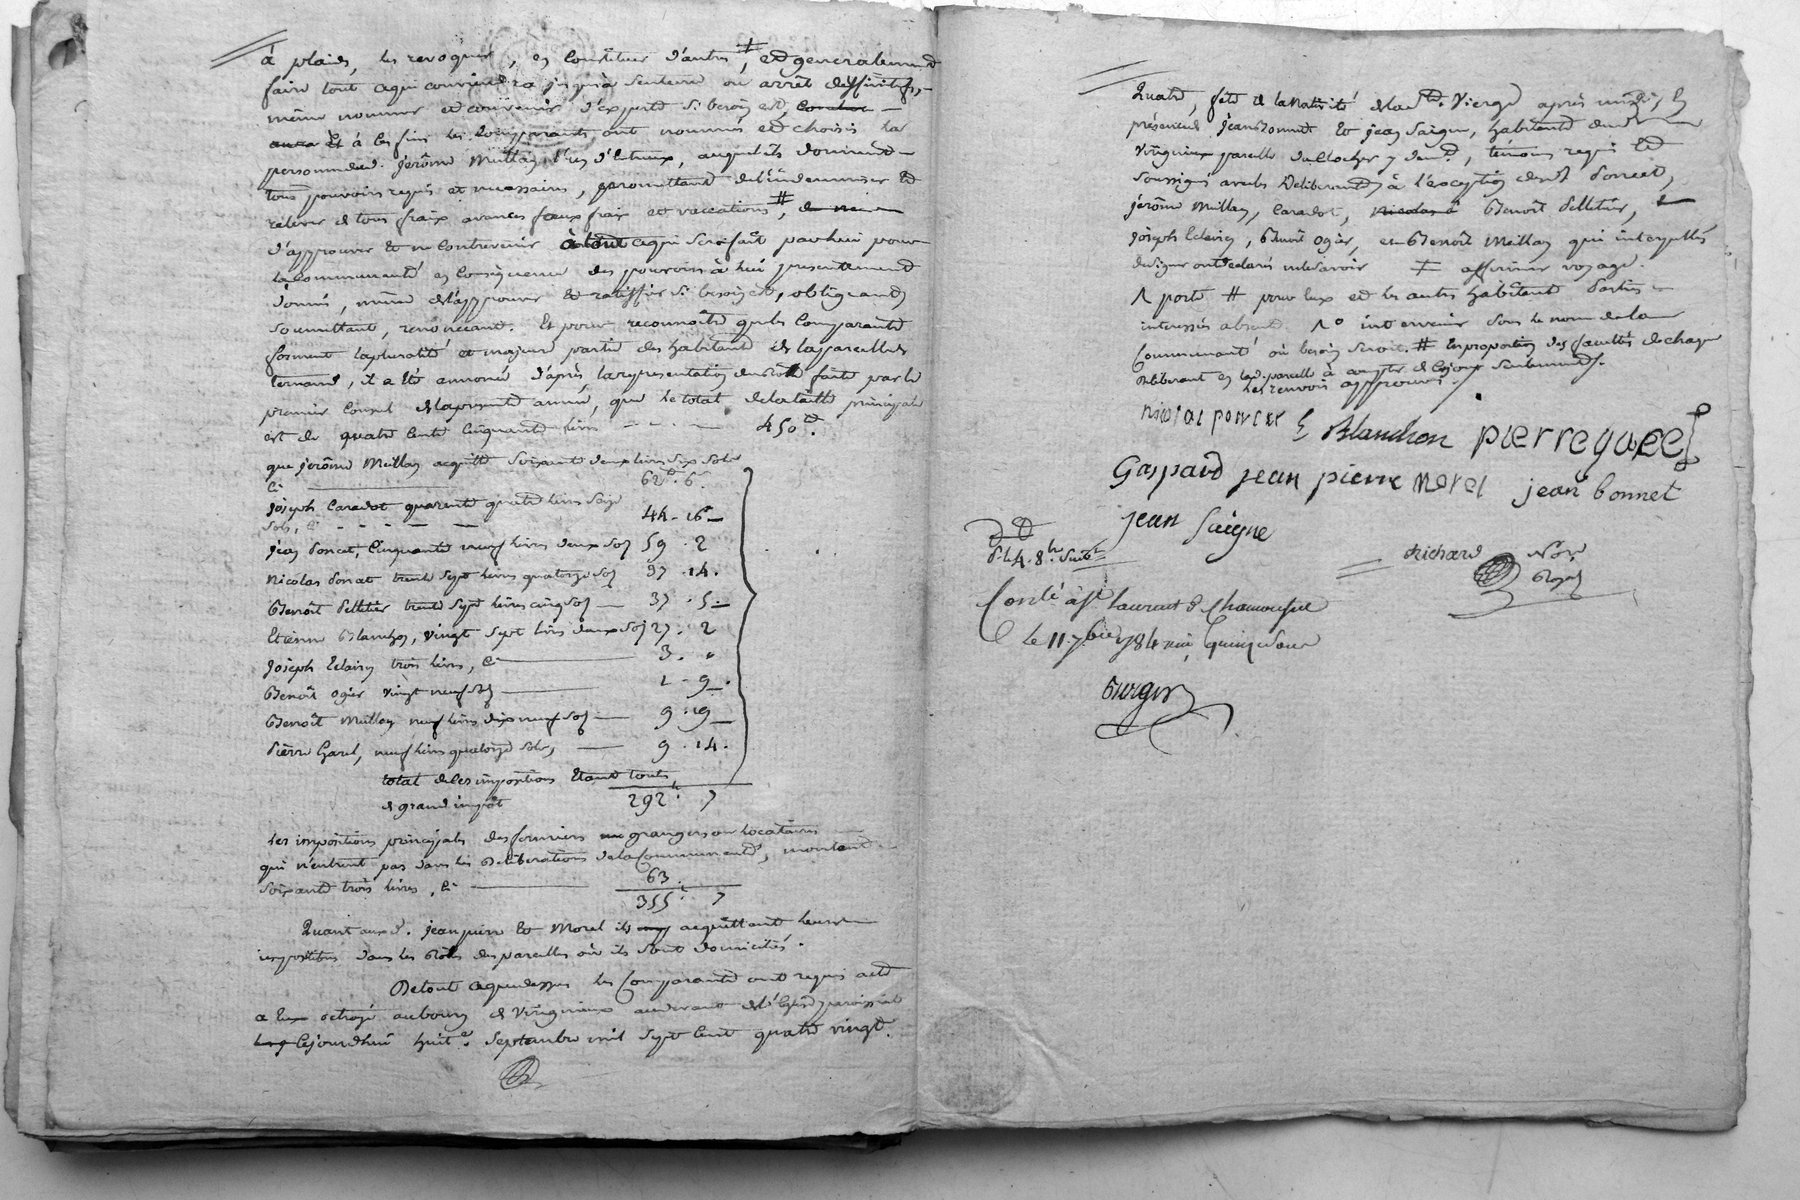 à plaids, les revoquer, en constituer d'autres ‡, et generalement
faire tout ce qui conviendra jusqu'à sentence ou arrêt deffinitifs,
même nommer et convenir d'experts si besoin est,
Et à ces fins les comparants ont nommés et choisis la
personne de d. jerôme Meillan, auquel ils donnent
tous pouvoirs requis et necessaires, promettant de l'indemniser et
relever de tous fraix avances faux fraix et vaccations ⧣,
d'approuver et ne contrevenir à tout ce qui sera fait par lui pour
la communauté en consequence des pouvoirs à lui presentement
donnés, même de l'approuver et ratiffier si besoin est, obligeant,
soumettant, renonceant. Et pour reconnoitre que les comparants
forment la pluralité et majeure partie des habitants de la parcelle de
, il a été annoncé d'après la representation du rôle faite par le
premier consul de la presente année, que le total de la taille principale
est de quatre cents cinquante livres 450 tt.
que jerôme Meillan acquitte soixante deux livres six sols
ci 62 tt. 6.
joseph Caradot quarante quatre livres seize
sols, ci 44 - 16
jean Poncet, cinquante neuf livres deux sols 59 . 2
Nicolas Poncet trente sept livres quatorze sols 37 . 14.
Benoît Pelletier trente sept livres cinq sols 37 . 5
Etienne Blanchon, vingt sept livres deux sols 27 . 2
joseph trois livres, ci 3. "
Benoît Ogier vingt neuf sols 1 - 9
Benoît Meillan neuf livres dix neuf sols 9 . 19
Pierre, neuf livres quatorze sols, 9 . 14.
total de ces impositions étant toutes
de grand impôt 292 tt. 7
Les impositions principales des fermiers grangers ou locataires
qui n'entrent pas dans les deliberations de la communauté, montent
soixante trois livres, ci 63
355 tt. 7
Quant aux d. jeanpierre et Morel ils acquittent leurs
impositions dans les rôles des parcelles où ils sont domiciliés.
De tout ce que dessus les comparants ont requis acte
a eux octroyé au bourg de Virigneux au devant de l'église paroissiale
cejourdhui huit e. septembre mil sept cent quatre vingt
quatre, fête de la Nativité de la Ste. Vierge après midi,
présences jean Bonnet et jean Saigne, habitants de
Virigneux parcelle du clocher y dem.t, témoins requis et
soussignés avec les deliberants, à l'exception desd. Poncet,
jerôme Meillan, Caradot, Benoît Pelletier,
joseph, Benoît Ogier, et Benoît Meillan qui interpellés
de signer ont declarés ne le savoir ‡ affirmer voyage.
porté ⧣ pour eux et les autres habitants
interessés absents. intervenir sous le nom de la
communauté où besoin seroit. ⧣ en proportion des facultés de chaque
deliberant en lad. parcelle à compter de ce jour seulement.
les renvois approuvés.
nicolas poncet Blanchon pierre
Gaspard jean pierre morel jean bonnet
jean Saigne
Richard Nore
Royal
Conlé à St Laurent de Chamousset
le 11. 7bre 1784 reçu quinze sous